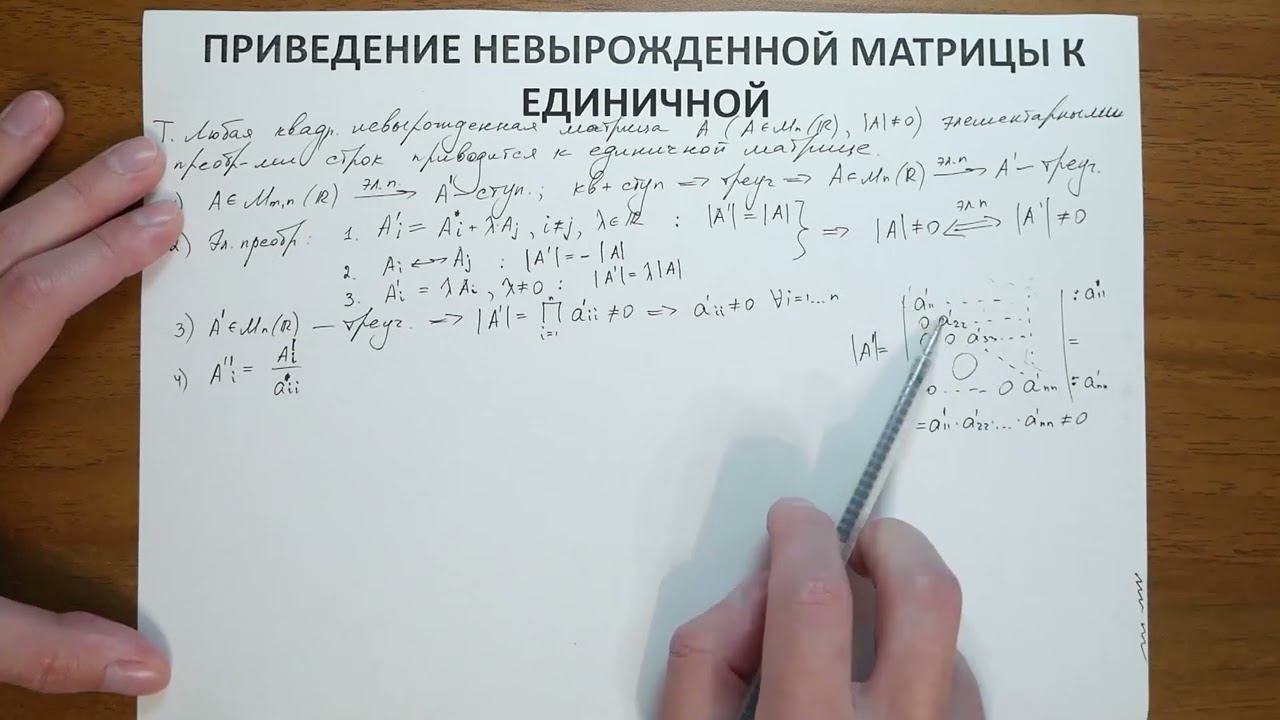 ПРИВЕДЕНИЕ НЕВЫРОЖДЕННОЙ МАТРИЦЫ К
ЕДИНИЧНОЙ
Т. Любая квадр. невырожденная матрица A (A∈Mn(ℝ), |A|≠0) элементарными
преобр-ми строк приводится к единичной матрице.
1) A∈Mm,n(ℝ) —эл.п→ A' – ступ.; кв+ступ ⇒ треуг ⇒ A∈Mn(ℝ) —эл.п→ A' – треуг.
2) Эл. преобр: 1. A'i = Ai + λAj, i≠j, λ∈ℝ : |A'|=|A| } ⇒ |A|≠0 ⇐эл.п⇒ |A'|≠0
2. Ai ↔ Aj : |A'|= – |A|
3. A'i = λAi, λ≠0 : |A'|=λ|A|
3) A'∈Mn(ℝ) – треуг. ⇒ |A'|= ∏ i=1 n a'ii ≠0 ⇒ a'ii≠0 ∀i=1...n
4) A''i = A'i / a'ii
|A'|= | a'11 - - - - | : a'11
0 a'22 - - -
0 0 a'33 ... =
0
0 ... 0 a'nn | : a'nn
= a'11 · a'22 · ... · a'nn ≠ 0